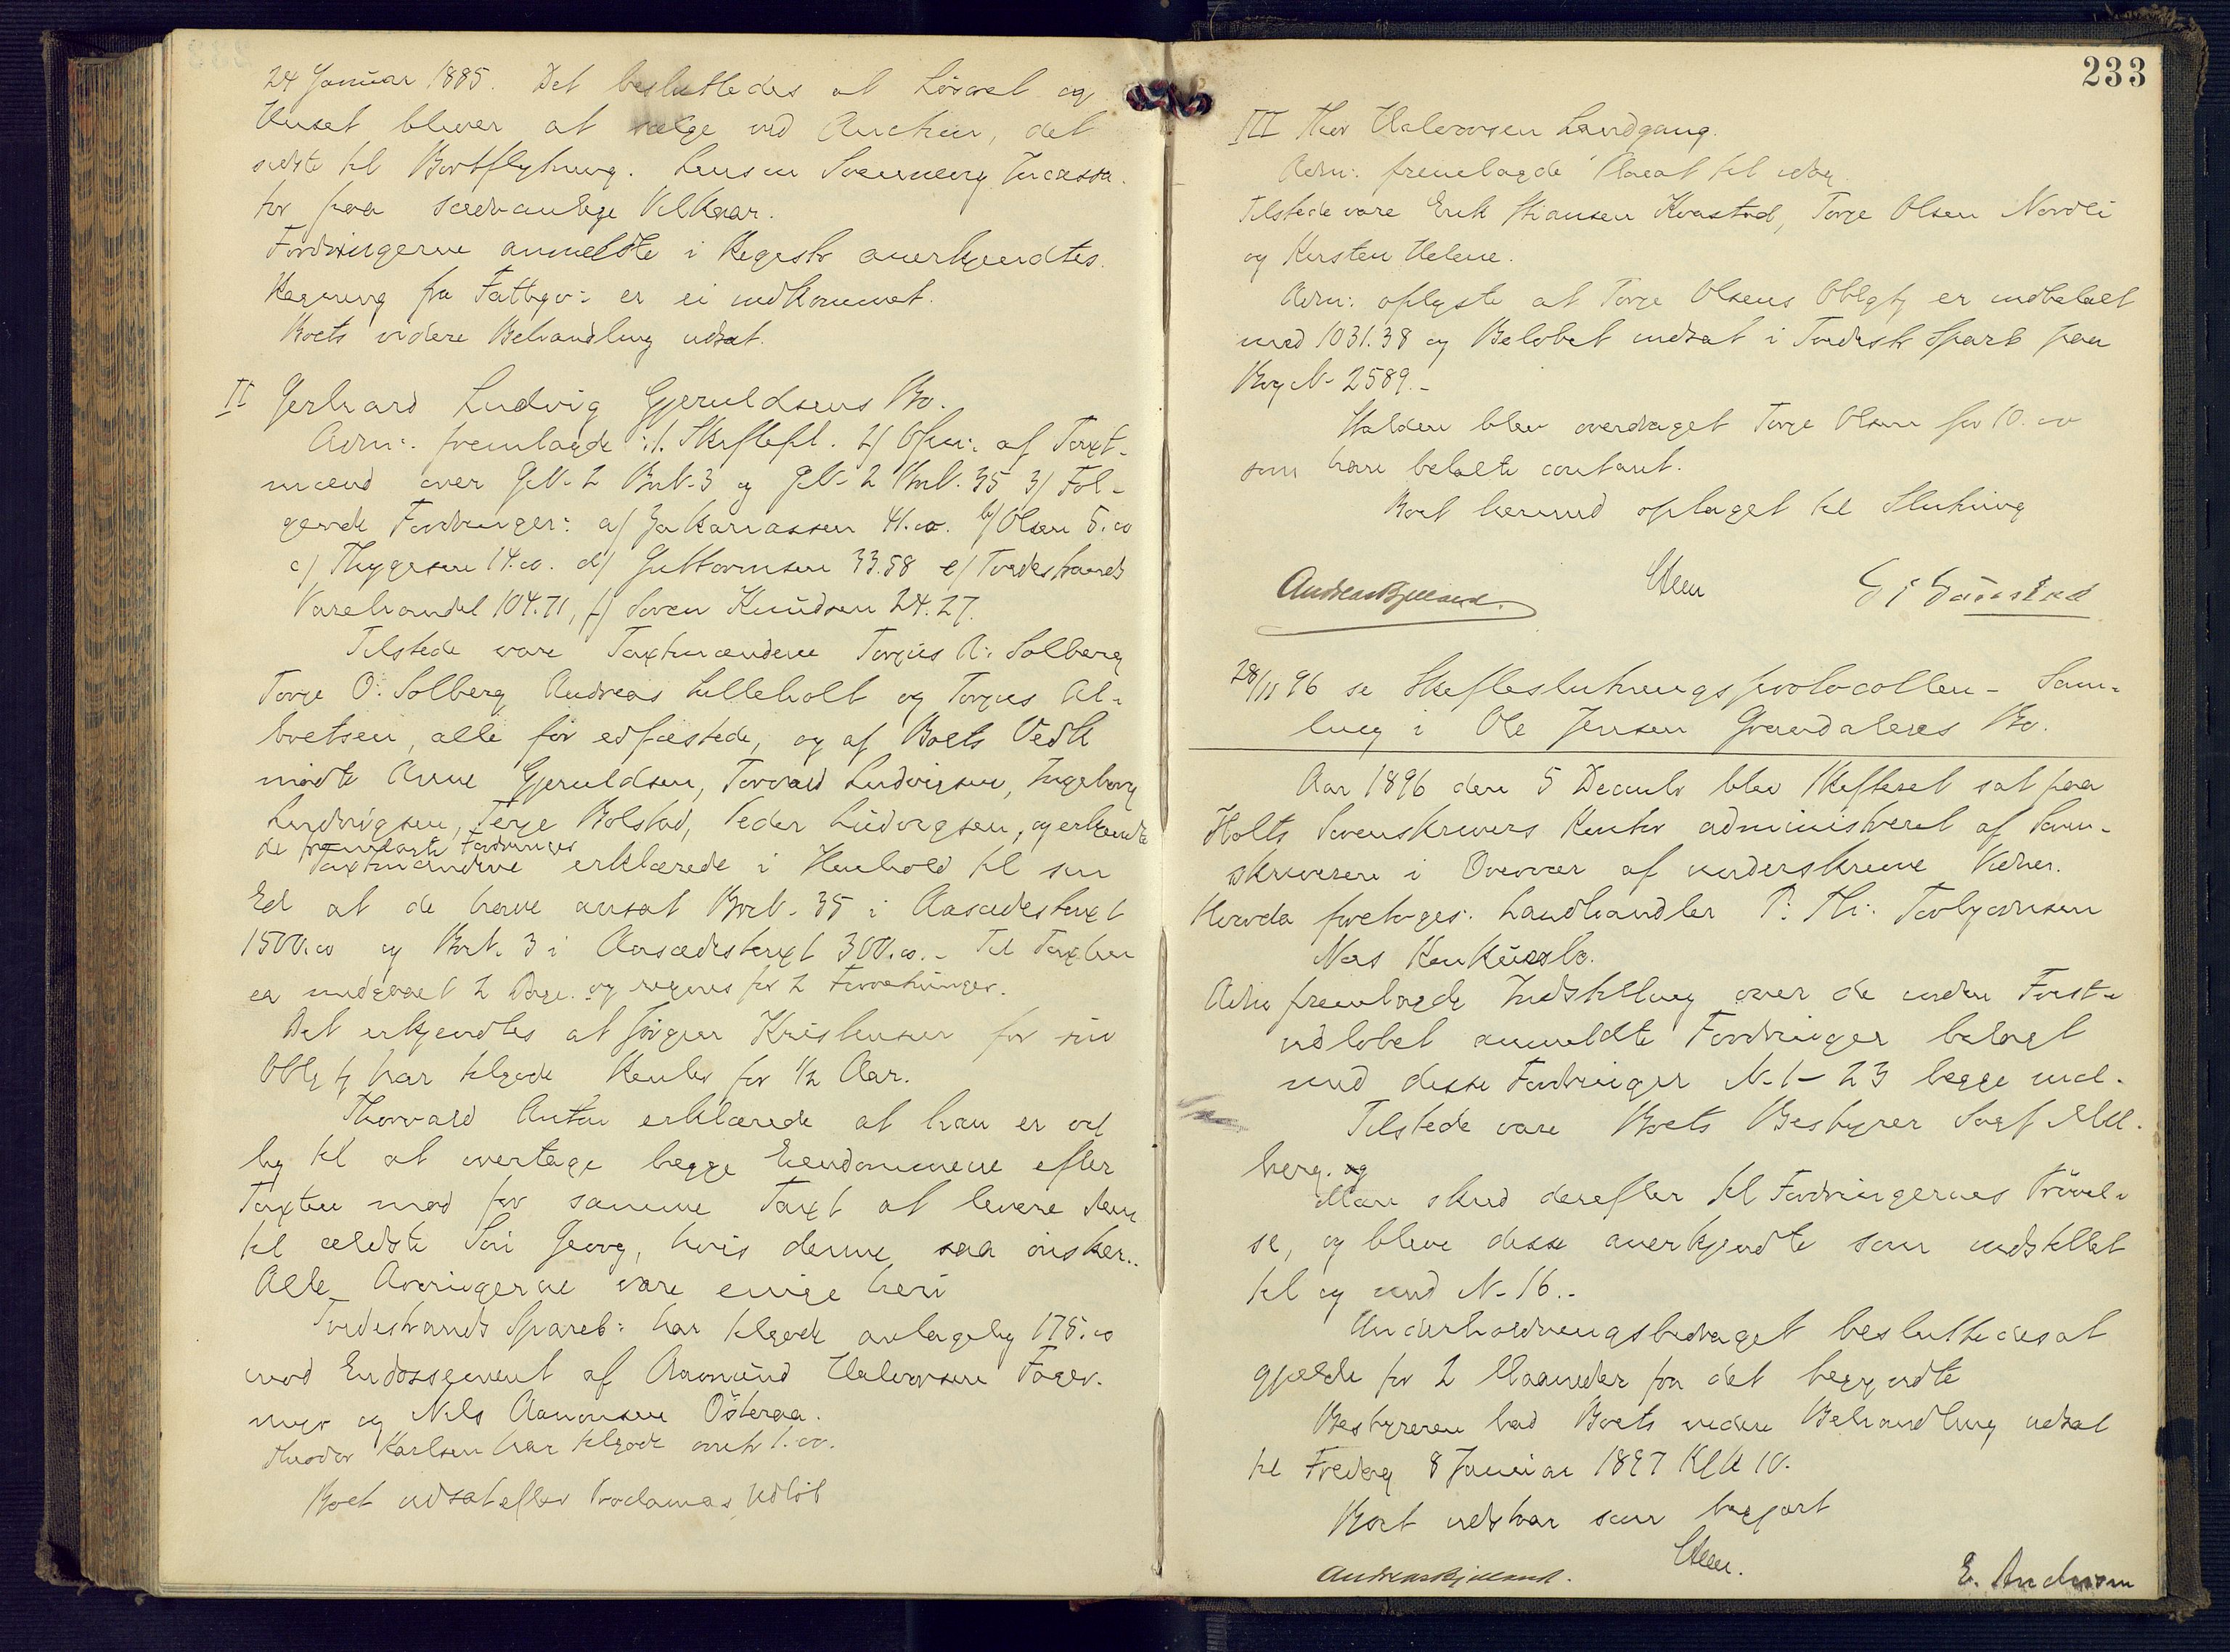 24 Januar 1885. Det besluttedes at Lösöret og
Huset bliver at sælge ved Auction, det
sidste til Bortflytning. Lensm Svenneng Incassa-
tor paa sædvanlige Vilkaar.
Fordringerne anmeldte i Registr anerkjendtes.
Regning fra Fattigv: er ei indkommet.
Boets videre Behandling udsat.
II Gerhard Ludvig Gjeruldsens Bo.
Adm: fremlagde: 1. Skiftefl. 2/ Opn: af Taxt-
mænd over GN- 2 BrN-3 og GN- 2 BrN. 35 3/ Föl-
gende Fordringer: a/ Zakariassen 41.00. b/ Olsen 5.00
c/ Thygesen 14.00. d/ Guttormsen 33.58 e/ Tvedestrands
Varehandel 104.71, f/ Soren Knudsen 24.27.
Tilstede vare Taxtmændene Torgus A: Solberg
Torge O: Solberg Andreas Lilleholt og Torgus Al-
bretsen, alle för edfæstede, og af Boets Vedk
mödte Anne Gjeruldsen, Torvald Ludvigsen, Ingeborg
Ludvigsen, Terje Bolstad, Peder Ludvigsen, og erkjendte
de fremlagte Fordringer
Taxtmændene erklærede i Henhold til sin
Ed at de have ansat BrN- 35 i Aasædestaxt
1500.00 og BrN. 3 i Aasædestaxt 300.00.- Til Taxten
er medgaaet 2 Dage. og regnes for 2 Forretninger.
Det erkjendtes at Jörgen Kristensen for sin
Oblg har tilgode Renter for 1/2 Aar.
Thorvald Anton erklærede at han er vil
lig til at overtage begge Eiendommene efter
Taxten mod for samme Taxt at levere dem
til ældste Sön Georg, hvis denne saa önsker..
Alle Arvingerne vare enige heri
Tvedestrands Spareb: har tilgode antagelig 175.00
mod Endossement af Aamund Halvorsen Foger-
myr og Nils Aanonsen Österaa.
Theodor Karlsen har tilgode 1.00.
Boet udsat efter Proclamas Udlöb
233
III Thor Halvorsen Landgang.
Adm: fremlagde Placat til idag
Tilstede vare Erik Stiansen Kvastad, Torge Olsen Nordli
og Kirsten Helene.
Adm: oplyste at Torge Olsens Oblgtj er indbetalt
med 1031.38 og Belöbet indsat i Tvedestr Sparb paa
Bog N- 2589.-
Stolden blev overdraget Torge Olsen for 10.00
som han betalte contant.
Boet hermed optaget til Slutning
Andreas Bjelland. Steen
28/11 96 se Skifteslutningsprotocollen - Sam-
ling i Ole Jensen Bo.
Aar 1896 den 5 Decembr blev Skifteret sat paa
Holts Sorenskrivers Kontor administreret af Soren-
skriveren i Overvær af underskrevne Vidner.
Hvorda foretoges: Landhandler P: Th: Torbjörnsen
Næs Konkursbo.
Adm fremlagde Indstilling over de inden Frist-
udlöbet anmeldte Fordringer belagt
med disse Fordringer N-1- 23 begge incl.
Tilstede vare Boets Bestyrer Sagf Mel-
berg. og
Man skred derefter til Fordringernes Prövel-
se, og bleve disse anerkjendte som indstillet
til og med N- 16.-
Underholdningsbidraget besluttedes at
gjelde for 2 Maaneder fra det begyndte
Bestyreren bad Boets videre Behandling udsat
til Fredag 8 Januar 1897 Kl 10.
Boet udstaar som begjært
Andreas Bjelland. Steen. E. Andersen